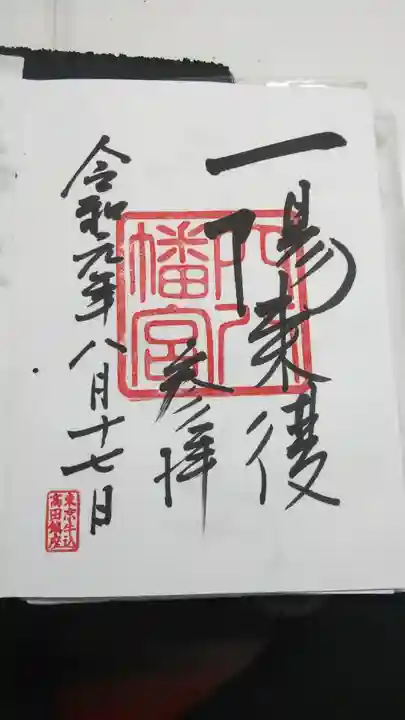 一陽来復
参拝
令和元年八月十七日
穴八幡宮
東京牛込
高田鎮座